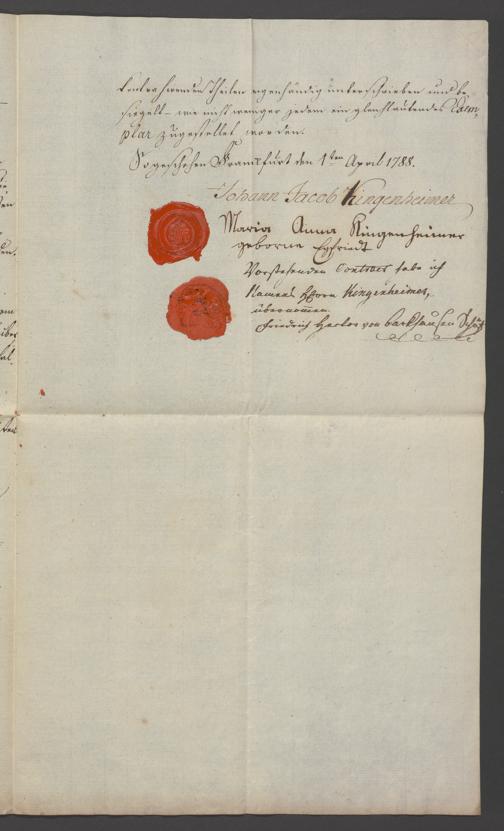 Contrahirenden Theilen eigenhändig unterschrieben und be-
siegelt – wie nicht weniger jedem ein gleichlautendes Exem-
plar zugestellet worden.
So geschehen Frankfurt den 1ten April 1788.
Johann Jacob Ringenheimer
Maria Anna Ringenheimer
geborne
Vorstehenden Contract habe ich
Namens Herrn Ringenheimer,
übernommen.
Friedrich Hector von Barkhausen